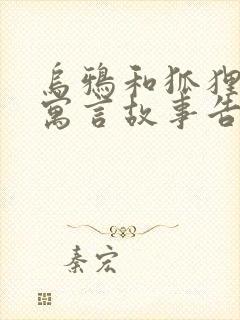 乌鸦和狐狸
寓言故事告
秦宏